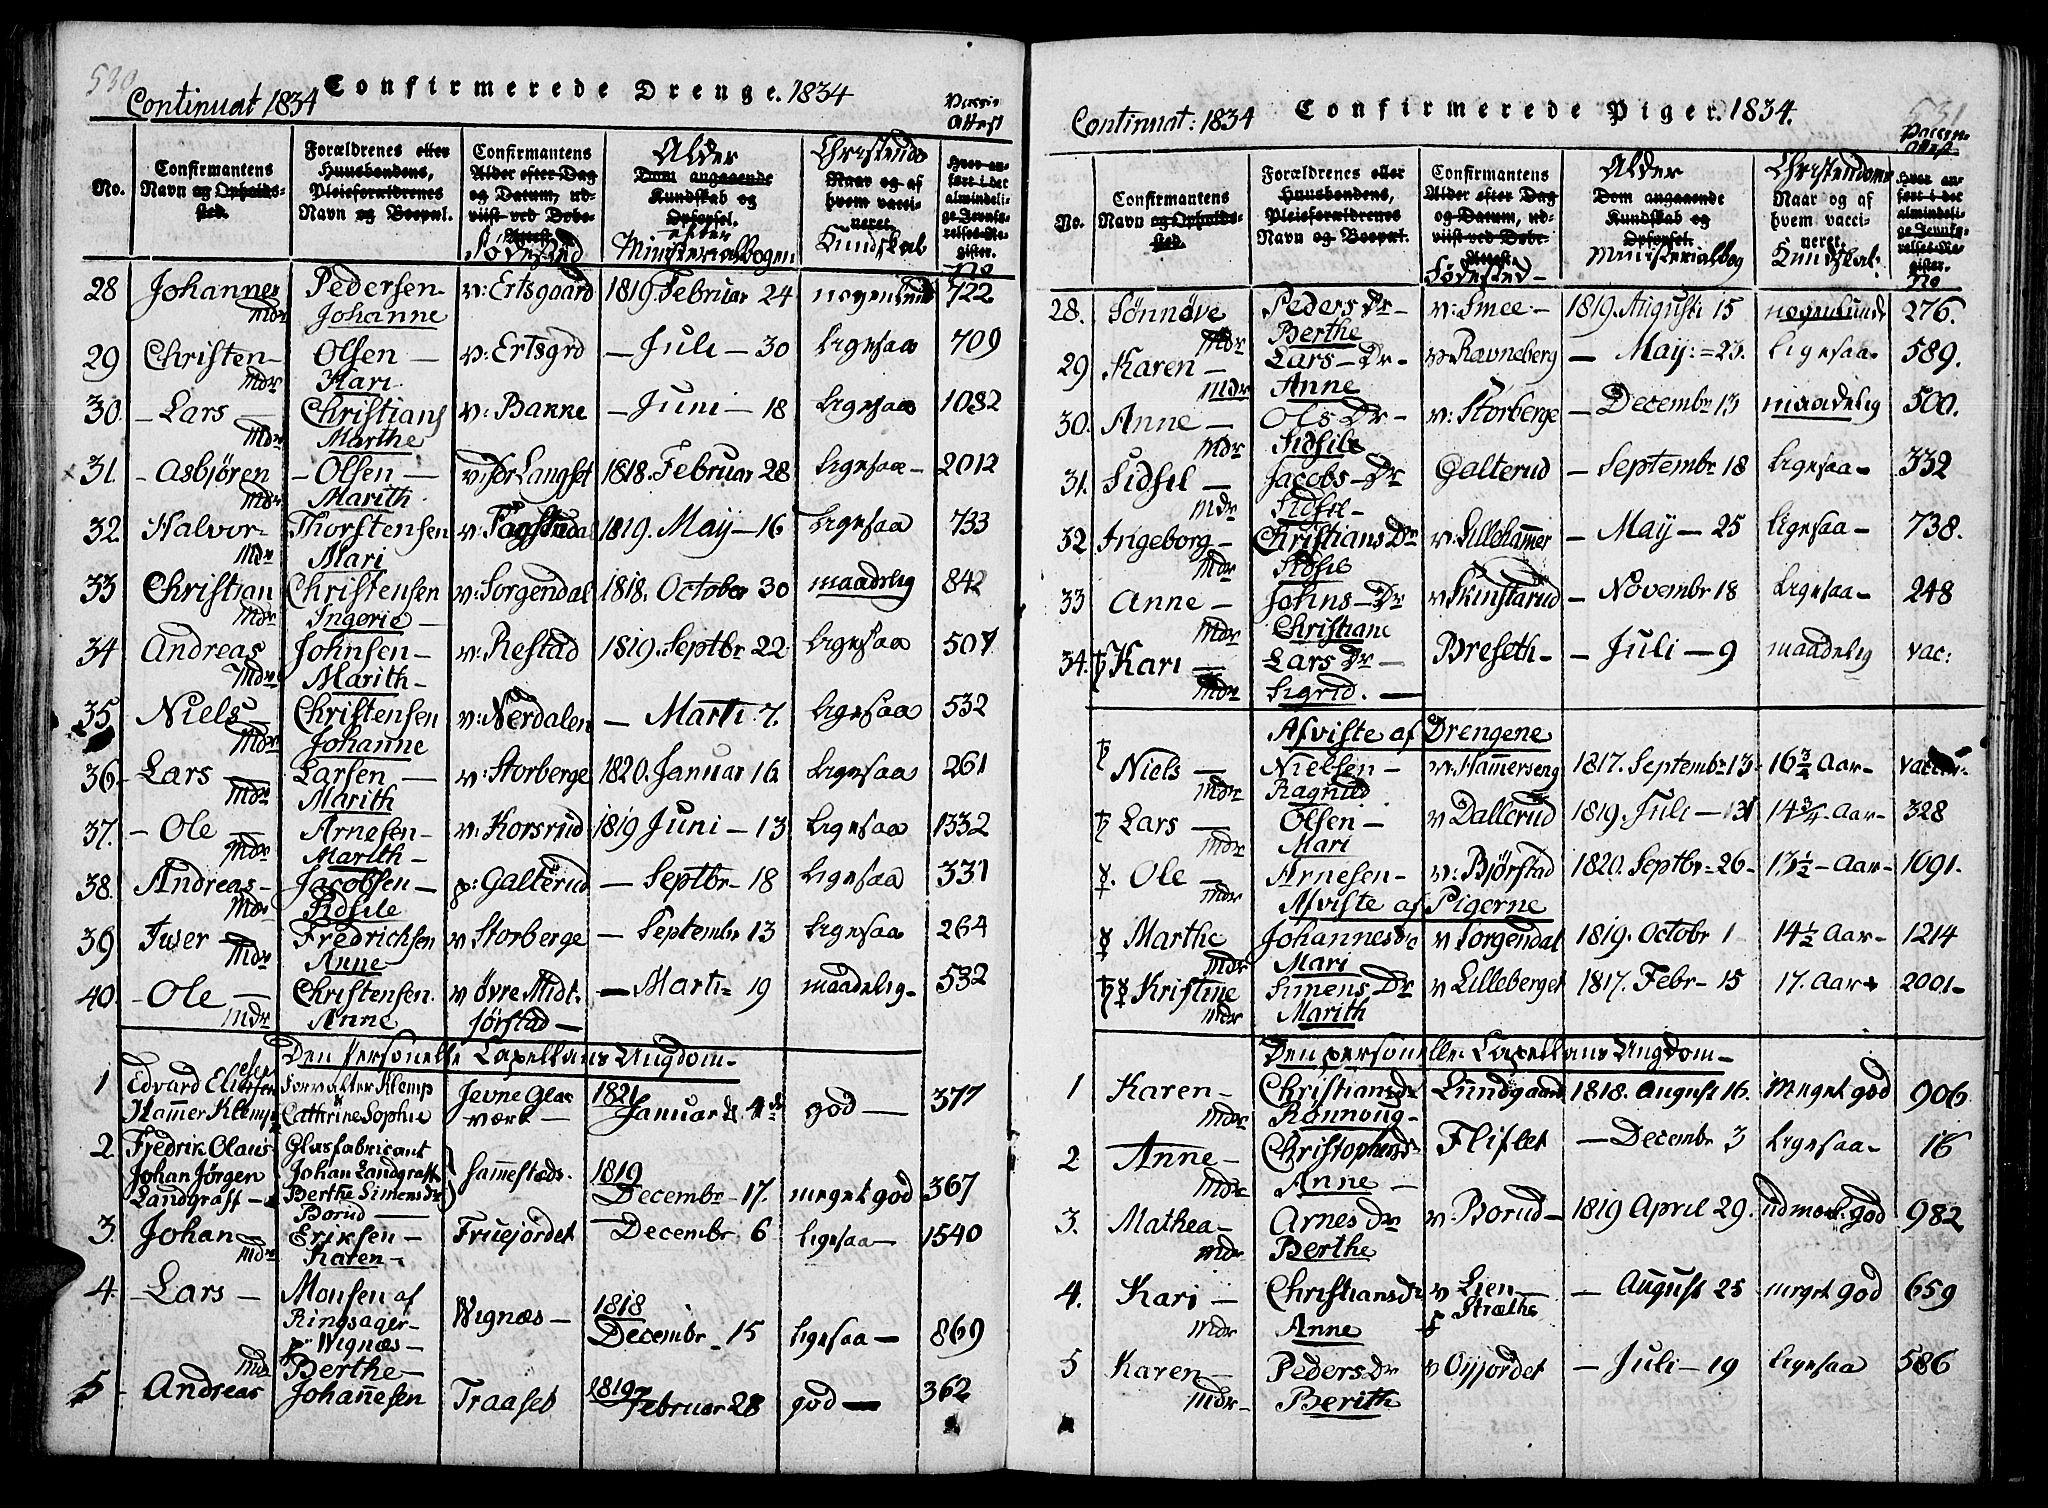 530
Continuat 1834 Confirmerede Drenge. 1834
Attest
No.
Confirmantens Navn og Opholdssted.
Forældrenes eller Huusbondens, Pleieforældrenes Navn og Boepæl.
Confirmantens Alder efter Dag og Datum, udviist ved Døbe-Attest. Fødested
Alder Dom angaaende Kundskab og Opførsel. efter Ministerialbogen
Christendoms Naar og af hvem vaccineret. Kundskab
Hvor anført i det almindelige Jevnførelses-Register. No
28 Johannes Pedersen v: Ertsgaard 1819. Februar 24 722
Mdr Johanne
29 Christen Olsen v: Ertsgrd — Juli — 30 ligesaa 709
Mdr Kari
30. Lars Christians v: Banne — Juni — 18 ligesaa 1082
Mdr Marthe
31. Asbjören Olsen 1818. Februar 28 ligesaa 2012
Mdr Marith
32 Halvor Thorstensen 1819. May — 16 ligesaa 733
Mdr Mari
33 Christian Christensen v: Sorgendal 1818. October 30 maadelig 842
Mdr Ingerie
34 Andreas Johnsen v: Restad 1819. Septbr 22 ligesaa 507
Mdr Marith
35 Niels Christensen v: Nerdalen — Marti 7. ligesaa 532
Mdr Johanne
36 Lars Larsen v: Storberge 1820. Januar 16 ligesaa 261
Mdr Marith
37. Ole Arnesen v: Korsrud 1819 Juni — 13 ligesaa 1332
Mdr Marith
38. Andreas Jacobsen Galterud — Septbr — 18 ligesaa 331
Mdr Sidsele
39 Iver Fredrichsen v Storberge — Septembr 13 ligesaa 264
Mdr Anne
40. Ole Christensen v øvre Midt- — Marti 19 maadelig 532
Mdr Anne jørstad
Den Personelle Capellans Ungdom
1 Edvard Elieser Forvalter Klemp Jevne Glas 1821
Hammer Klemp Cathrine Sophie værk Januar d. 4de god 377
2 Fredrik Olaus Glasfabricant
Johan Jörgen Johan Landgraff sammestæds 1819
Landgraff Berthe Simens Dr Decembr 17. meget god 367
Borud
3. Johan Eriksen Fruejordet — Decembr 6 ligesaa 1540
Mdr Karen
4. Lars Monsen af Wignæs 1818
Ringsager Decembr 15 ligesaa 869
Wignæs
Mdr Berthe
5 Andreas Johannesen Traaset 1819 Februar 28 god 362
531
Continuat: 1834 Confirmerede Piger. 1834.
Attest
No.
Confirmantens Navn og Opholdssted.
Forældrenes eller Huusbondens, Pleieforældrenes Navn og Boepæl.
Confirmantens Alder efter Dag og Datum, udviist ved Døbe-Attest. Fødested
Alder Dom angaaende Kundskab og Opførsel. Ministerialbog
Christendoms Naar og af hvem vaccineret. Kundskab
Hvor anført i det almindelige Jevnførelses-Register. No
28. Sönnöve Peders Dr v: Smee 1819. Augusti 15 276.
Mdr Berthe
29 Karen Lars Dr v: Ravneberg — May: 23. ligesaa 589.
Mdr Anne
30. Anne Ols Dr v: Storberge — Decembr 13 maadelig 500.
Mdr Sidsele
31. Sidsel Jacobs Dr Galterud — Septembr 18 ligesaa 332
Mdr Sidsel
32. Ingeborg Christians Dr v: Lillehammer — May — 25 ligesaa 738.
Mdr Sidsele
33 Anne Johns Dr v Skinstarud — Novembr 18 ligesaa 248
Mdr Christiane
34. Kari Lars Dr Breseth — Juli — 9 maadelig vac:
Mdr Sigrid.
Afviste af Drengene
Niels Nielsen v: Hammerseng 1817. Septembr 13 16 3/4 Aar
Mdr Ragnild
Lars Olsen v Dallerud 1819. Juli 14 3/4 Aar 328
Mdr Mari
Ole Arnesen v: Bjørstad 1820. Septbr 26 13 1/2 Aar 1691.
Mdr
Afviste af Pigerne
Marthe Johannesdr v Sorgendal 1819. Octobr 1 14 1/2 Aar 1214
Mdr Mari
Kristine Simens Dr v Lilleberget 1817. Febr 15 17. Aar 2001
Mdr Marith
Den personelle Capellans Ungdom
1 Karen Christiansdr Lundgaard 1818. August 16. meget god 906
Mdr Rönnoug
2 Anne Christophersdr Fliflet — Decembr 3 ligesaa 16
Mdr Anne
3. Mathea Arnes Dr v: Borud 1819 April 29. udmærk. god 982
Mdr Berthe
4. Kari Christiansdr v Lien — August 25 meget god 659
Mdr Anne Stræthe
5 Karen Peders Dr v Oyjordet — Juli — 19 ligesaa 586
Mdr Berith